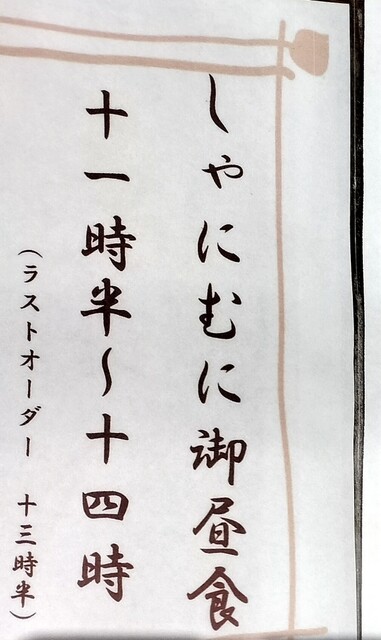 しゃにむに御昼食
十一時半～十四時
（ラストオーダー　十三時半）